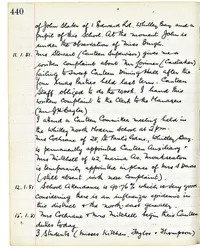 440
of John Slater of 1 Edmund Rd, Whitley Bay and a
pupil of this School. At the moment John is
under the observation of Miss Pugh.
11.1.81. Mrs Stewart (Canteen Supervisor) gives me a
written complaint about Mr Farmer (Caretaker)
failing to sweep Canteen Dining Hall after the
four hours Parties held last term. Canteen
Staff obliged to do the work. I hand this
written complaint to the Clerk to the Managers
I attend a Canteen Committee meeting held in
the Whitley North Modern School at 2pm.
Mrs Cochrane of 28, St Pauls Road, Whitley Bay
is permanently appointed Canteen Auxiliary &
Mrs Mitchell of 42, Marina Av, Monkseaton
is temporarily appointed in place of Mrs J Davis
(still absent sick now complaint).
12.1.81 School Attendance is 90.76% which is very good
considering there is an influenza epidemic in
this district & the north east generally.
15.1.81 Mrs Cochrane & Mrs Mitchell begin their Canteen
duties today
3 Students (Misses Kitchen, Taylor & Thompson)